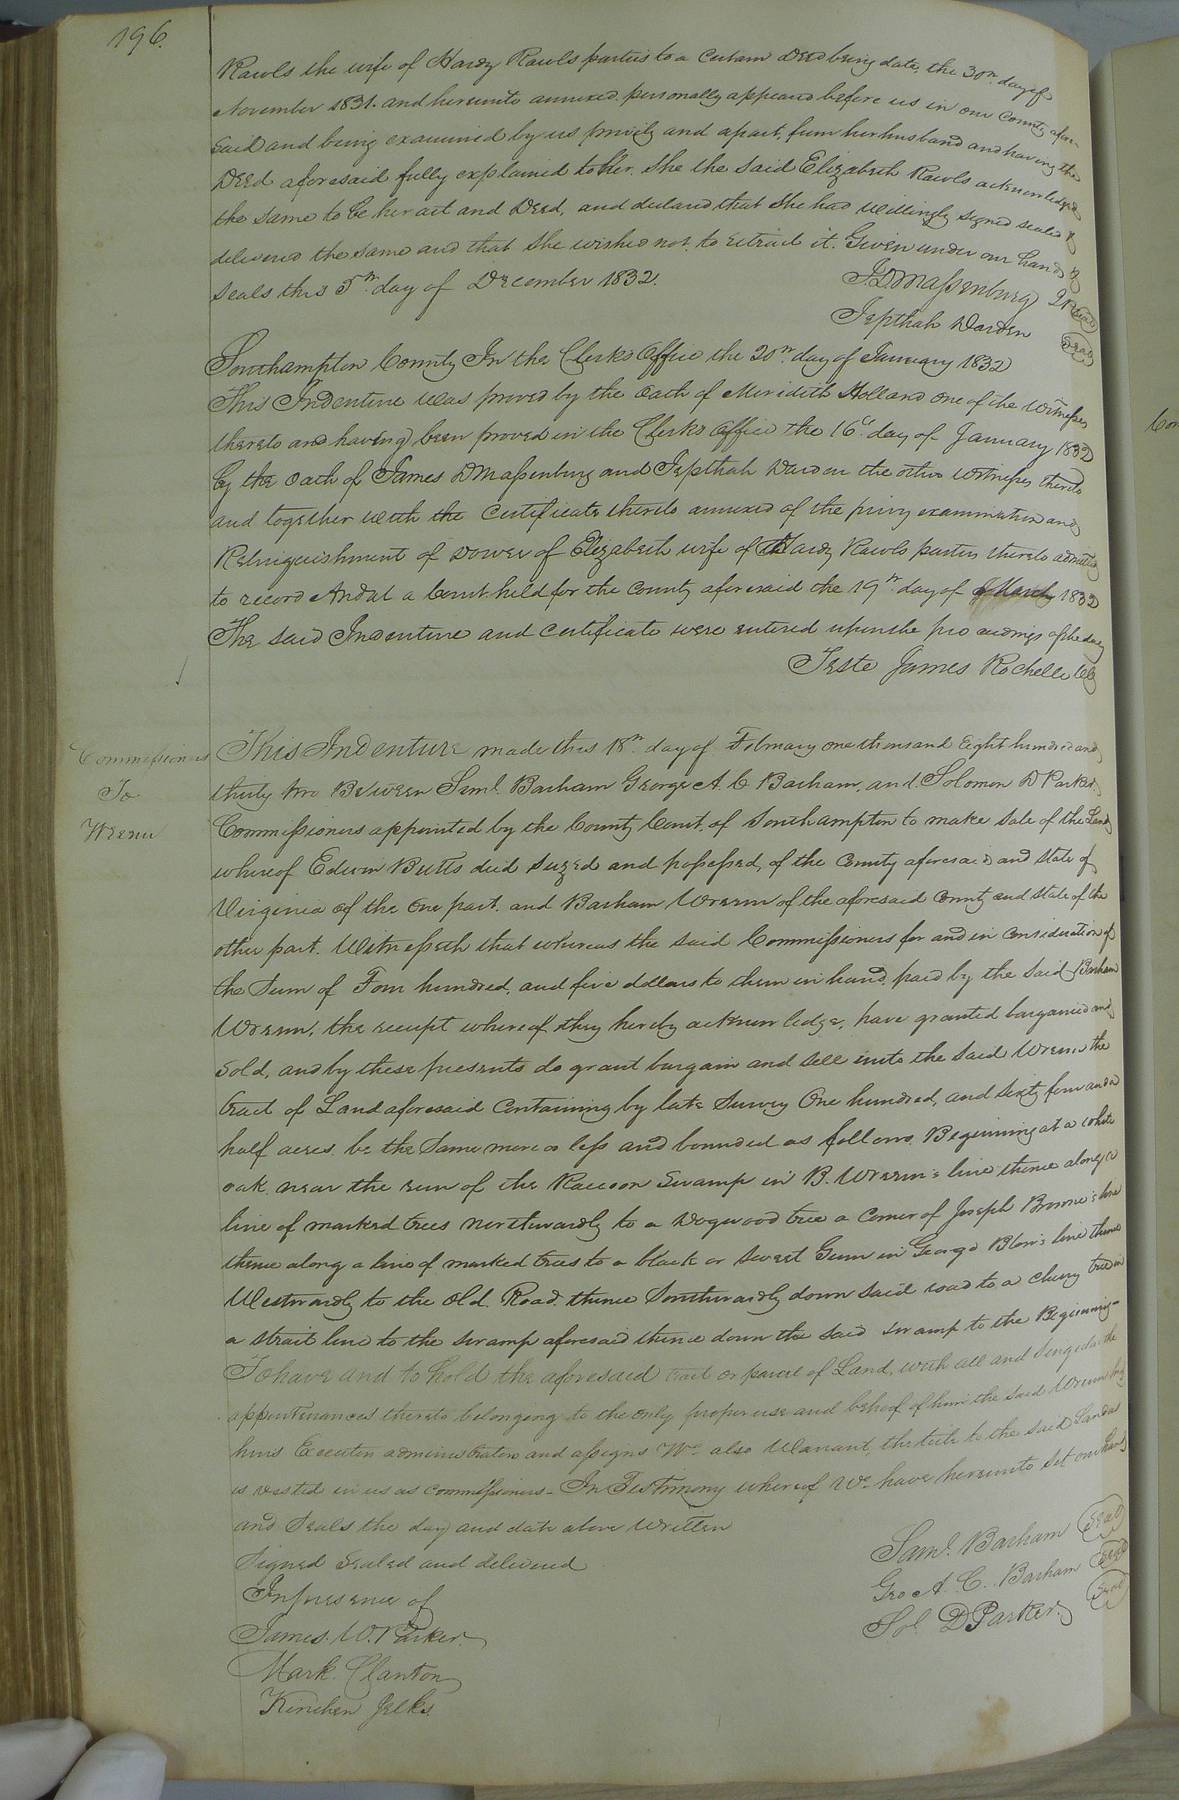 196.
Rawls the wife of Hardy Rawls parties to a Certain Deed being date, the 30th day of
November 1831. and hereunto annexed personally appeared before us in our County afore-
said and being examined by us privily and apart, from her husband and having the
Deed aforesaid fully explained to her, She the said Elizabeth Rawls acknowledged
the same to be her act and Deed, and declared that She had willingly signed sealed &
delivered the same and that She wished not to retract it. Given under our hands &
seals this 5th day of December 1832.
J. D Maſsenburg JP Seal
Jepthah Darden Seal
Southampton County In the Clerks Office the 20th day of January 1832
This Indenture was proved by the Oath of Meridith Holland one of the Witneſses
thereto and having been proved in the Clerks Office the 16th day of January 1832
by the Oath of James D Maſsenburg and Jepthah Darden the other Witneſses thereto
and together with the Certificate thereto annexed of the privy examination and
Relinquishment of Dower of Elizabeth wife of Hardy Rawls parties thereto admitted
to record And at a Court held for the County aforesaid the 19th day of March 1832
The said Indenture and Certificate were entered upon the proceedings of the day
Teste James Rochelle CC
Commiſsioners
To
Wrenn
This Indenture made this 18th day of February one thousand Eight hundred and
thirty two Between Saml. Barham George A. C Barham, and Solomon D Parker,
Commiſsioners appointed by the County Court of Southampton to make sale of the Land
whereof Edwin Butts died Seized and poſseſsed, of the County aforesaid and State of
Virginia of the One part. and Barham Wrenn of the aforesaid County and State of the
other part. Witneſseth that whereas the said Commiſsioners for and in Consideration of
the Sum of Four hundred, and five dollars to them in hand, paid by the Said Barham
Wrenn, the receipt whereof they hereby acknowledge, have granted bargained and
sold, and by these presents do grant bargain and sell unto the said Wrenn the
tract of Land aforesaid Containing by late Survey One hundred, and Sixty four and a
half acres, be the Same more or leſs and bounded as follows, Beginning at a white
oak near the run of the Raccoon Swamp in B. Wrenn's line thence along a
line of marked trees northwardly to a Dogwood tree a Corner of Joseph Browne's line
thence along a line of marked trees to a black or sweet Gum in George Blow's line thence
Westwardly to the Old Road thence Southwardly down said road to a cherry tree in
a strait line to the swamp aforesaid thence down the said swamp to the Beginning-
To have and to hold the aforesaid tract or parcel of Land, with all and Singular the
appurtenances thereto belonging to the only proper use and behoof of him the said Wrenn his
heirs Executors administrators and aſsigns We also Warrant, the title to the said Land as
is vested in us as Commiſsioners- In Testimony whereof We have hereunto Set our hands
and Seals the day and date above Written
Signed Sealed and delivered
In presence of
James. W. Parker
Mark. Clanton
Kinchen Jelks.
Saml. Barham Seal
Geo A. C. Barham Seal
Sol D Parker. Seal